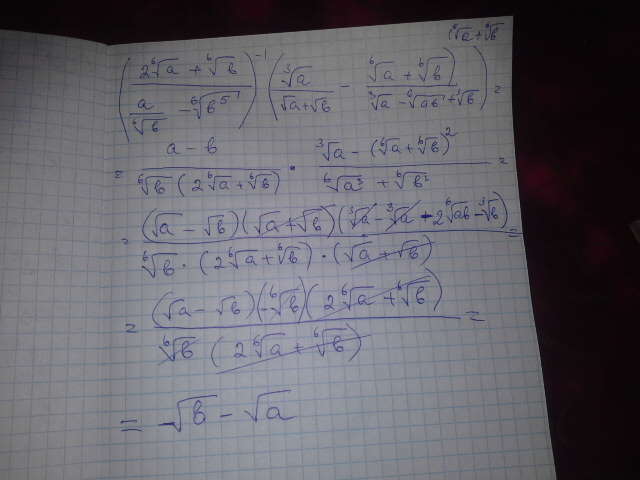 (⁶√a + ⁶√b
((2⁶√a + ⁶√b)/(a/⁶√b - ⁶√b⁵))⁻¹ (³√a/(√a + √b) - (⁶√a + ⁶√b)/(³√a - ⁶√ab + ³√b)) =
= (a - b)/(⁶√b (2⁶√a + ⁶√b)) · (³√a - (⁶√a + ⁶√b)²)/(⁶√a³ + ⁶√b³) =
= (√a - √b)(√a + √b)(³√a - ³√a - 2⁶√ab - ³√b)/(⁶√b · (2⁶√a + ⁶√b) · (√a + √b)) =
= (√a - √b)(-⁶√b)(2⁶√a + ⁶√b)/(⁶√b (2⁶√a + ⁶√b)) =
= √b - √a